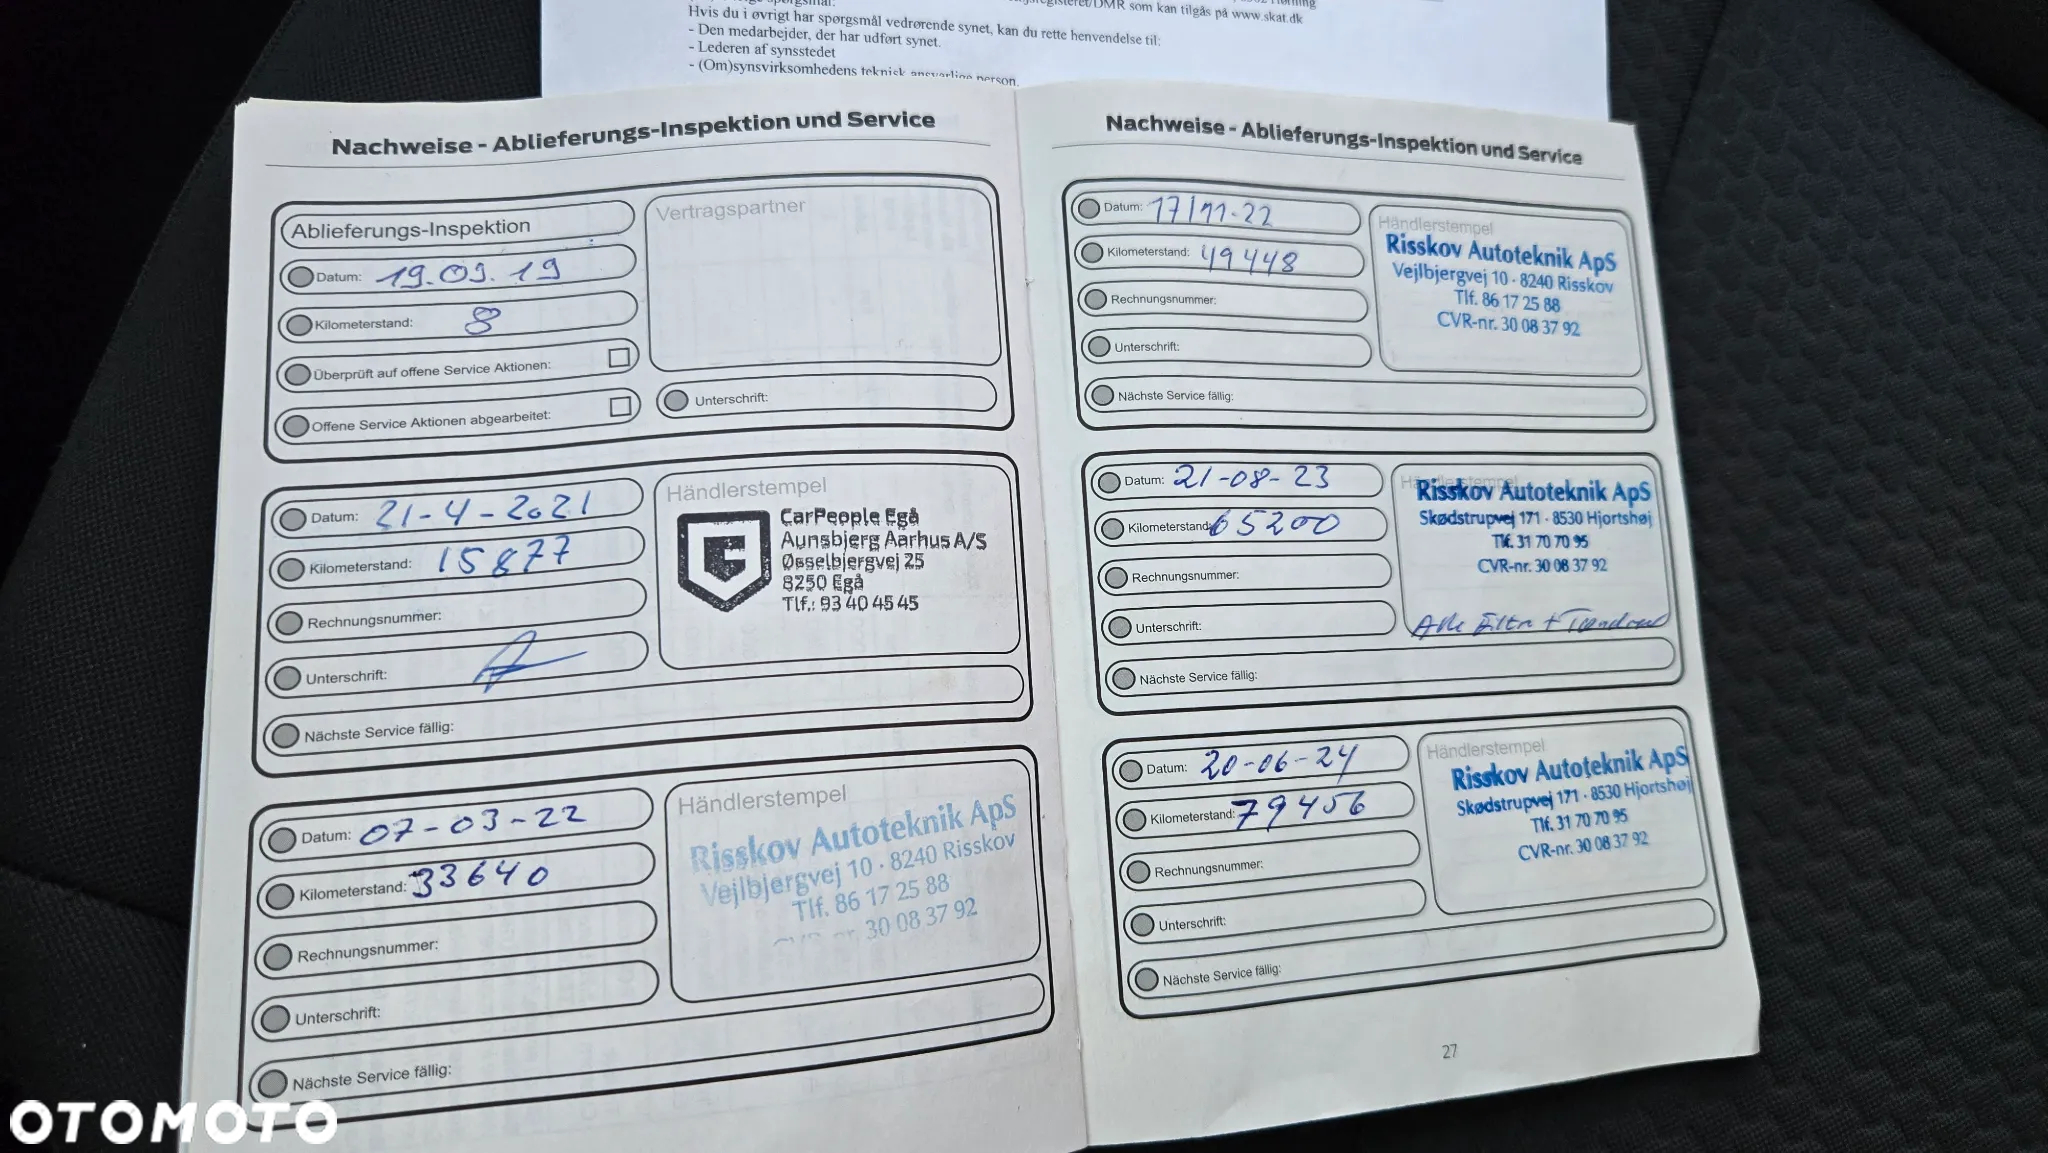 Hvis du i øvrigt har spørgsmål vedrørende synet, kan du rette henvendelse til:
- Den medarbejder, der har udført synet.
- Lederen af synsstedet
- (Om)synsvirksomhedens teknisk ansvarlige person.
registeret/DMR som kan tilgås på www.skat.dk
Nachweise - Ablieferungs-Inspektion und Service
Ablieferungs-Inspektion
Datum: 19.09.19
Kilometerstand: 8
Überprüft auf offene Service Aktionen:
Offene Service Aktionen abgearbeitet:
Vertragspartner
Unterschrift:
Datum: 21-4-2021
Kilometerstand: 15877
Rechnungsnummer:
Unterschrift:
Nächste Service fällig:
Händlerstempel
CarPeople Egå
Aunsbjerg Aarhus A/S
Øsselbjergvej 25
8250 Egå
Tlf.: 93 40 45 45
Datum: 07-03-22
Kilometerstand: 33640
Rechnungsnummer:
Unterschrift:
Nächste Service fällig:
Händlerstempel
Risskov Autoteknik ApS
Vejlbjergvej 10 · 8240 Risskov
Tlf. 86 17 25 88
CVR-nr. 30 08 37 92
Nachweise - Ablieferungs-Inspektion und Service
Datum: 17/11-22
Kilometerstand: 49448
Rechnungsnummer:
Unterschrift:
Nächste Service fällig:
Händlerstempel
Risskov Autoteknik ApS
Vejlbjergvej 10 · 8240 Risskov
Tlf. 86 17 25 88
CVR-nr. 30 08 37 92
Datum: 21-08-23
Kilometerstand: 65200
Rechnungsnummer:
Unterschrift:
Nächste Service fällig:
Händlerstempel
Risskov Autoteknik ApS
Skødstrupvej 171 · 8530 Hjortshøj
Tlf. 31 70 70 95
CVR-nr. 30 08 37 92
Alle Filtre +
Datum: 20-06-24
Kilometerstand: 79456
Rechnungsnummer:
Unterschrift:
Nächste Service fällig:
Händlerstempel
Risskov Autoteknik ApS
Skødstrupvej 171 · 8530 Hjortshøj
Tlf. 31 70 70 95
CVR-nr. 30 08 37 92
27
OTOMOTO